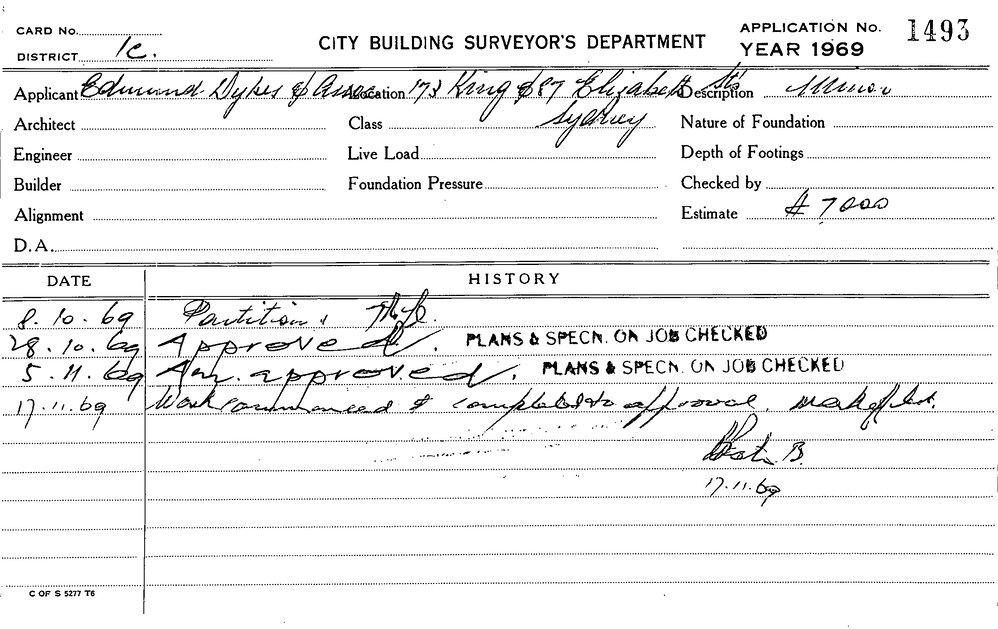 CARD No.
DISTRICT 1c.
CITY BUILDING SURVEYOR'S DEPARTMENT
APPLICATION No. 1493
YEAR 1969
Applicant Edmund Dykes & Assoc Location 173 King & 87 Elizabeth Sts Description Minor
Sydney
Architect Class Nature of Foundation
Engineer Live Load Depth of Footings
Builder Foundation Pressure Checked by
Alignment Estimate $ 7000
D.A.
DATE HISTORY
8.10.69 Partitions
28.10.69 Approved. PLANS & SPECN. ON JOB CHECKED
5.11.69 Am. approved. PLANS & SPECN. ON JOB CHECKED
17.11.69 Work commenced & completed to approval.
17.11.69
C OF S 5277 T6